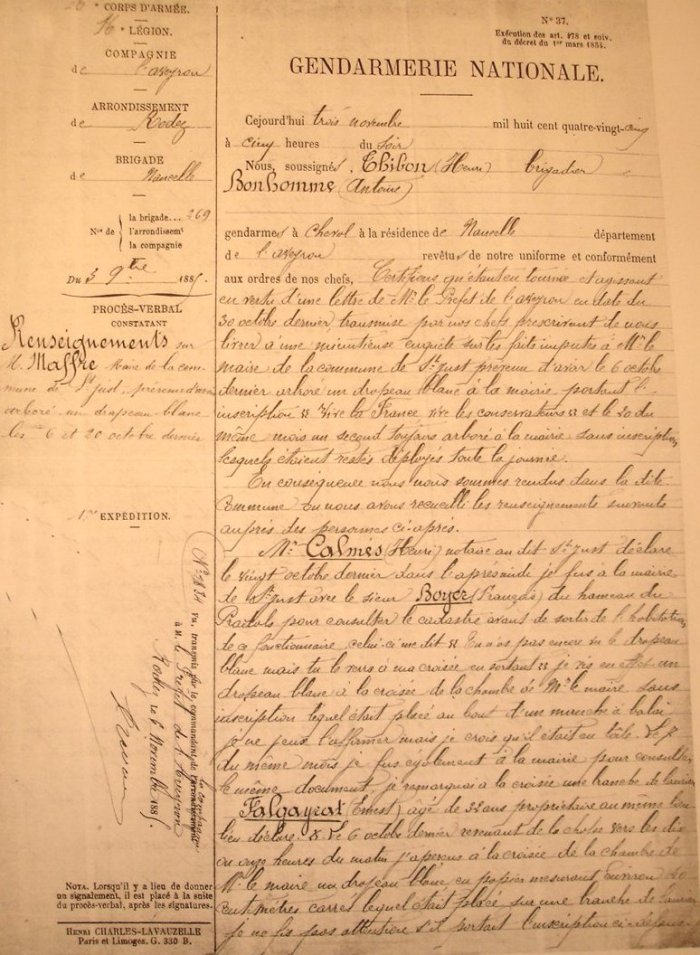 CORPS D'ARMÉE.
16e LÉGION.
COMPAGNIE
de l'aveyron
ARRONDISSEMENT
de Rodez
BRIGADE
de Naucelle
Nos de
la brigade... 269
l'arrondissemt
la compagnie
Du 3 9bre 1885.
PROCÈS-VERBAL
CONSTATANT
Renseignements sur
M. Maffre Maire de la com-
mune de St just, prévenu d'avoir
arboré un drapeau blanc
les 6 et 20 octobre dernier
1re EXPÉDITION.
No 1834 Vu, transmis par le commandant de l'arrondissement
à M. le Préfet de l'Aveyron
Rodez, le 6 Novembre 1885.
NOTA. Lorsqu'il y a lieu de donner
un signalement, il est placé à la suite
du procès-verbal, après les signatures.
HENRI CHARLES-LAVAUZELLE
Paris et Limoges. G. 330 B.
No 37.
Exécution des art. 478 et suiv.
du décret du 1er mars 1854.
GENDARMERIE NATIONALE.
Cejourd'hui trois novembre mil huit cent quatre-vingt-cinq
à cinq heures du soir
Nous, soussignés Thibon (Henri) brigadier
Bonhomme (Antoine)
gendarmes à Cheval à la résidence de Naucelle département
de l'aveyron revêtus de notre uniforme et conformément
aux ordres de nos chefs, Certifions qu'étant en tournée et agissant
en vertu d'une lettre de Mr le Préfet de l'aveyron en date du
30 octobre dernier, transmise par nos chefs prescrivant de nous
livrer a une minutieuse enquête sur les faits imputés à Mr le
maire de la commune de St just prévenu d'avoir le 6 octobre
dernier arboré un drapeau blanc à la mairie portant l'
inscription « Vive la France vive les conservateurs » et le 20 du
même mois un second toujours arboré à la mairie sans inscription
lesquels étaient restés déployés toute la journée.
En conséquence nous nous sommes rendus dans la dite
Commune ou nous avons recueilli les renseignements suivants
auprès des personnes ci-après.
Mr Calmès (Henri) notaire au dit St just déclare
le vingt octobre dernier dans l'après midi je fus à la mairie
de St just avec le sieur Boyer (François) du hameau du
Pradols pour consulter le cadastre avant de sortir de l'habitation
de ce fonctionnaire, celui-ci me dit « Tu n'as pas encore vu le drapeau
blanc mais tu le verras à ma croisée en sortant » je vis en effet un
drapeau blanc à la croisée de la chambe de Mr le maire sans
inscription lequel était placé au bout d'un manche à balai
je ne peux l'affirmer mais je crois qu'il était en toile. Le 7
du même mois je fus également à la mairie pour consulter
le même document, je remarquai à la croisée une branche de laurier
Falgayrat (Ernest) agé de 32 ans propriétaire au même
lieu déclare. « Le 6 octobre dernier revenant de la chasse vers les dix
ou onze heures du matin j'aperçus à la croisée de la chambre de
Mr le maire un drapeau blanc en papier mesurant environ 20
centimètres carrés lequel était placé sur une branche de laurier
je ne fis pas attention s'il portait l'inscription ci-dessus